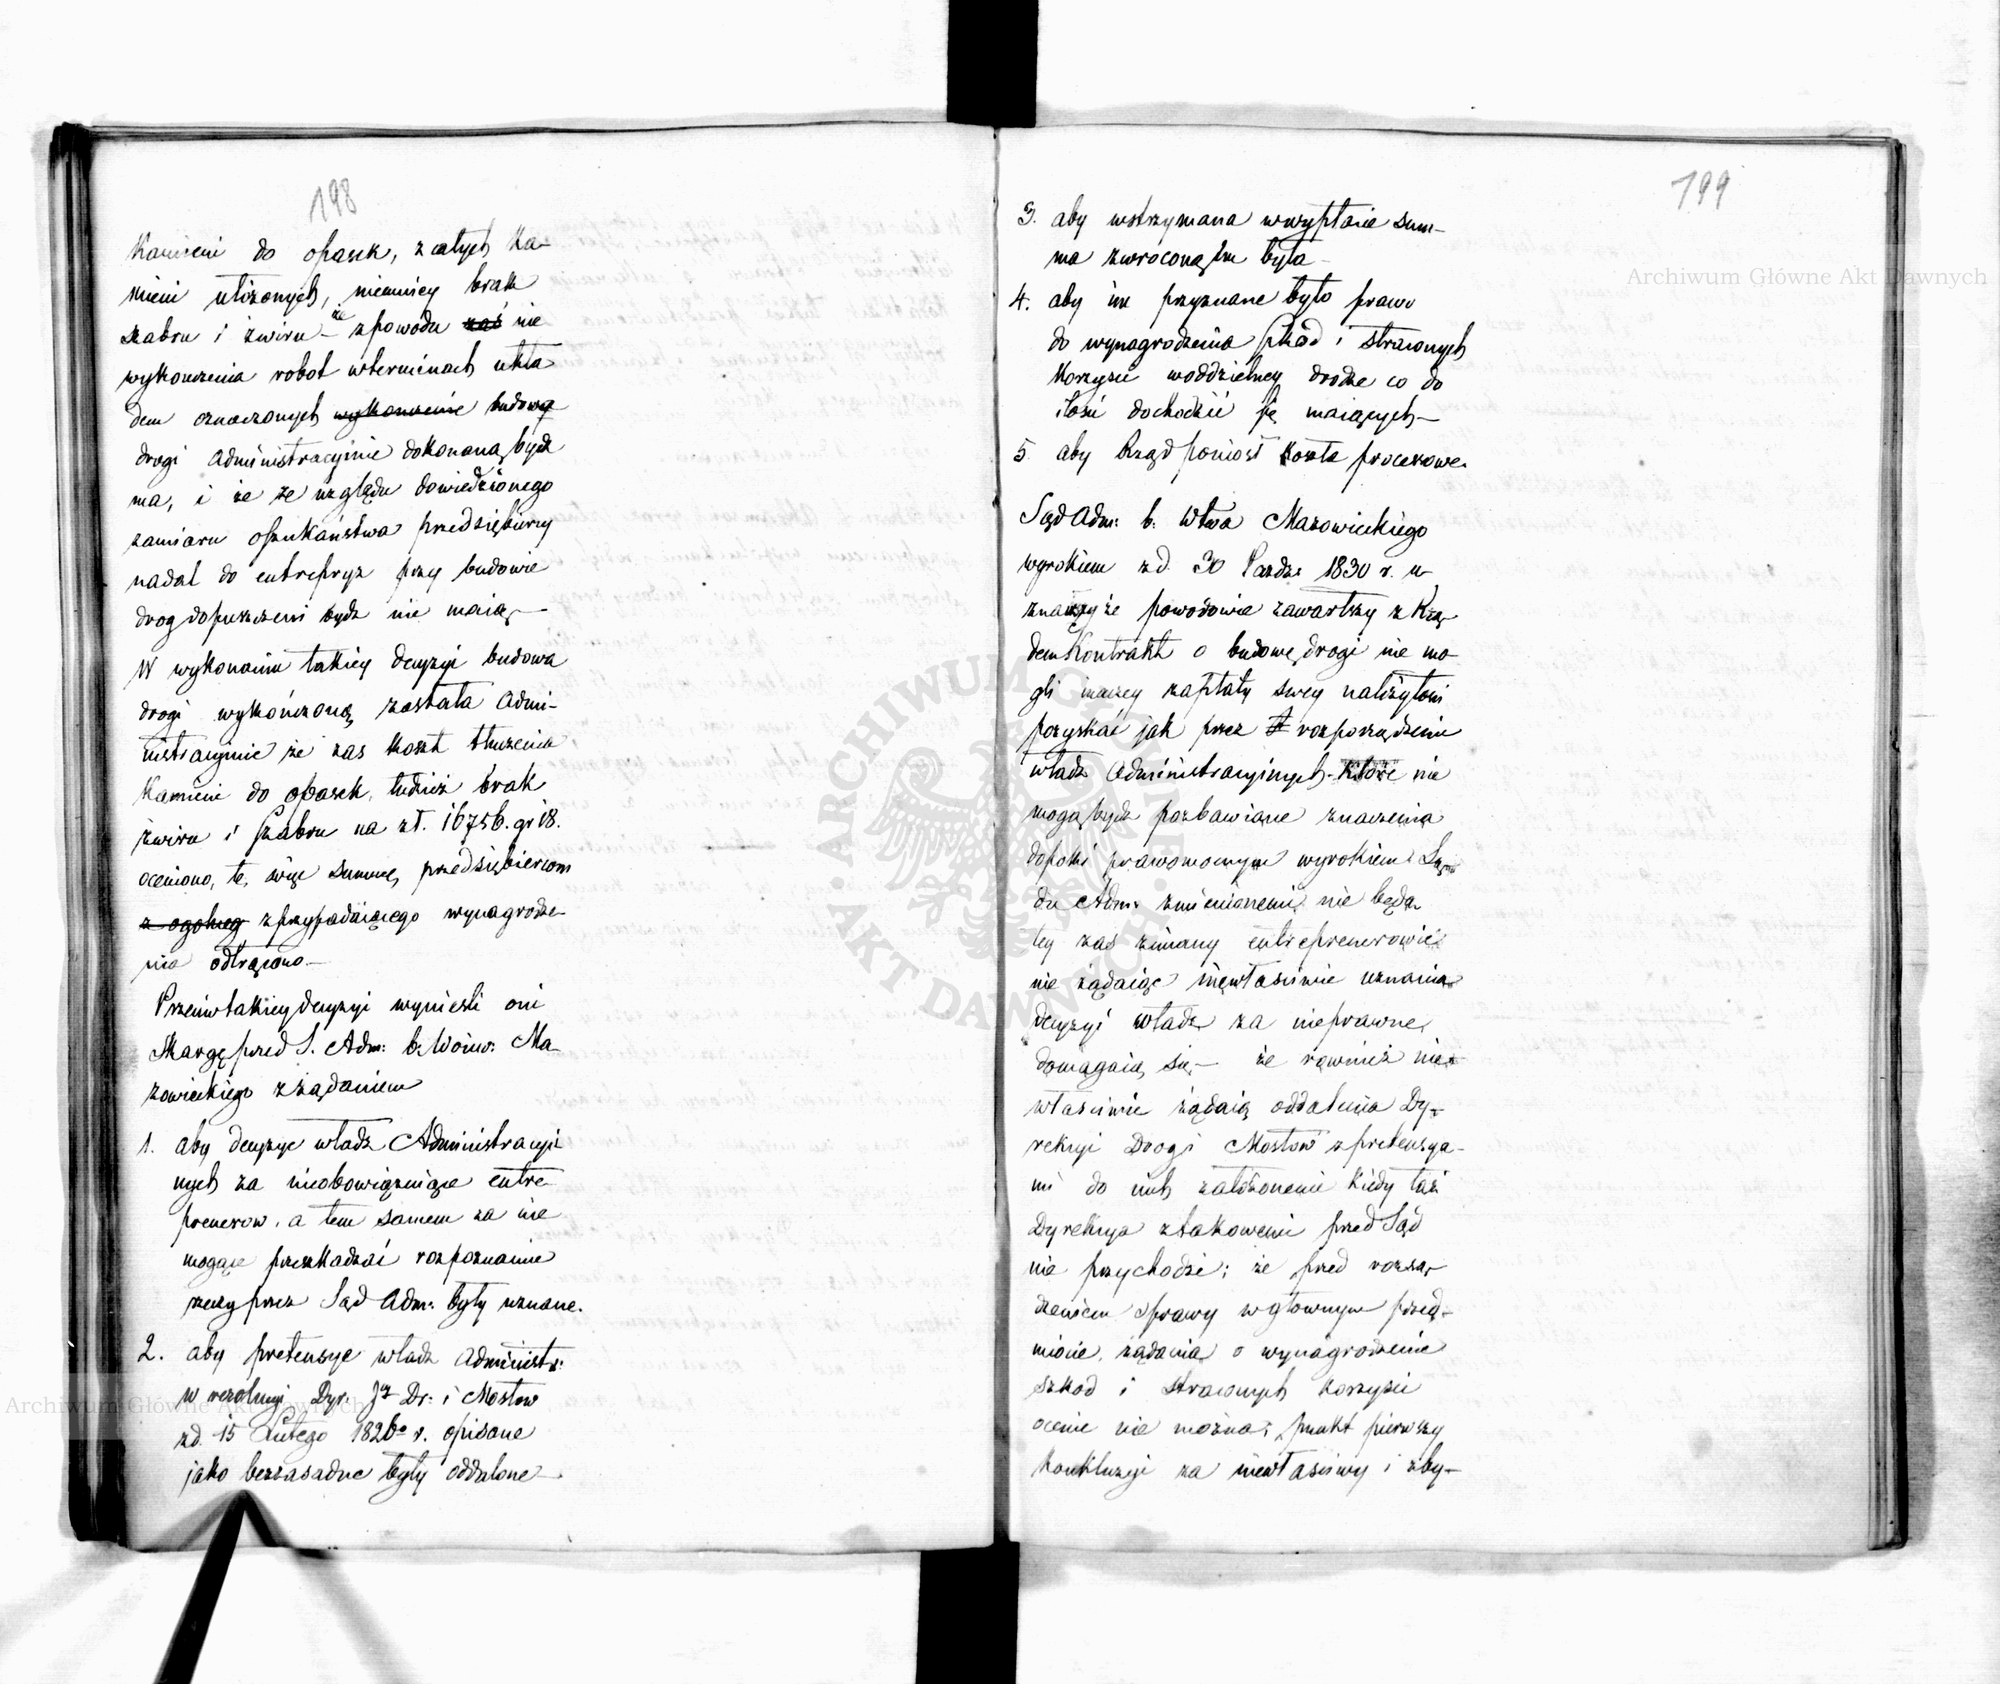 198
Kamieni do opasek, z całych Ka-
mieni ułożonych, niemniey brak
szabru i żwiru – że z powodu zaś nie
wykończenia robot w terminach ukła
dem oznaczonych wykonczenie budowa
drogi Administracyinie dokonaną bydź
ma, i że ze względu dowiedzionego
zamiaru oszukaństwa przedsiębiercy
nadal do entrepryz przy budowie
drog dopuszczeni bydz nie maią –
W wykonaniu takiey decyzyi budowa
drogi wykończoną została Admi-
nistracyinie że zas koszt tłuczenia
Kamieni do opasek, tudzież brak
żwiru i szabru na zł. 16756. gr 18.
oceniono, tę więc summę przedsiębiercom
z ogolney z przypadaiącego wynagrodze-
nia odtrącono –
Przeciw takiey decyzyi wynieśli oni
skargę przed S. Adm: b. Woiew: Ma-
zowieckiego z żądaniem
1. aby decyzye władz Administracyi
nych za nieobowiązuiące entre-
prenerow, a tem samem za nie
mogące przeszkadzać rozpoznanie
rzeczy przez Sąd Adm: były uznane.
2. aby pretensye władz Administr:
w rezolucyi Dyr. Jlz Dr: i Mostow
z d. 15 Lutego 1826o r. opisane
jako bezzasadne były oddalone –
199
3. aby wstrzymana w wypłacie sum-
ma zwroconą im była –
4. aby im przyznane było prawo
do wynagrodzenia szkód i straconych
Korzyści w oddzielney drodze co do
ilości dochodzić się maiących –
5 aby Rząd poniosł koszta processowe.
Sąd Adm: b: Wtwa Mazowieckiego
wyrokiem z d. 30 Pazdz: 1830 r. u-
znaiąc że powodowie zawarłszy z Rzą-
dem Kontrakt o budowę drogi nie mo-
gli inaczey zapłaty swey należytości
pozyskać jak przez rozporządzenie
władz Administracyinych – Które nie
mogą bydz pozbawione znaczenia
dopoki prawomocnym wyrokiem Są-
du Adm: zmienionemi nie będą
tey zas zmiany entreprenerowie
nie żądaiąc niewłaściwie uznania
decyzyi władz za nieprawne,
domagaią się – że rownież nie
właściwie żądaią oddalenia Dy-
rekcyi Drog i Mostow z pretensya-
mi do nich założonemi kiedy taż
Dyrekcya z takowemi przed Sąd
nie przychodzi; że przed rozsą-
dzeniem sprawy w głownym przed-
miocie, żądania o wynagrodzenie
szkod i straconych korzyści
ocenic nie można; punkt pierwszy
Konkluzyi za niewłaściwy i zby-
Archiwum Główne Akt Dawnych
Archiwum Główne Akt Dawnych
ARCHIWUM GŁÓWNE · AKT DAWNYCH ·